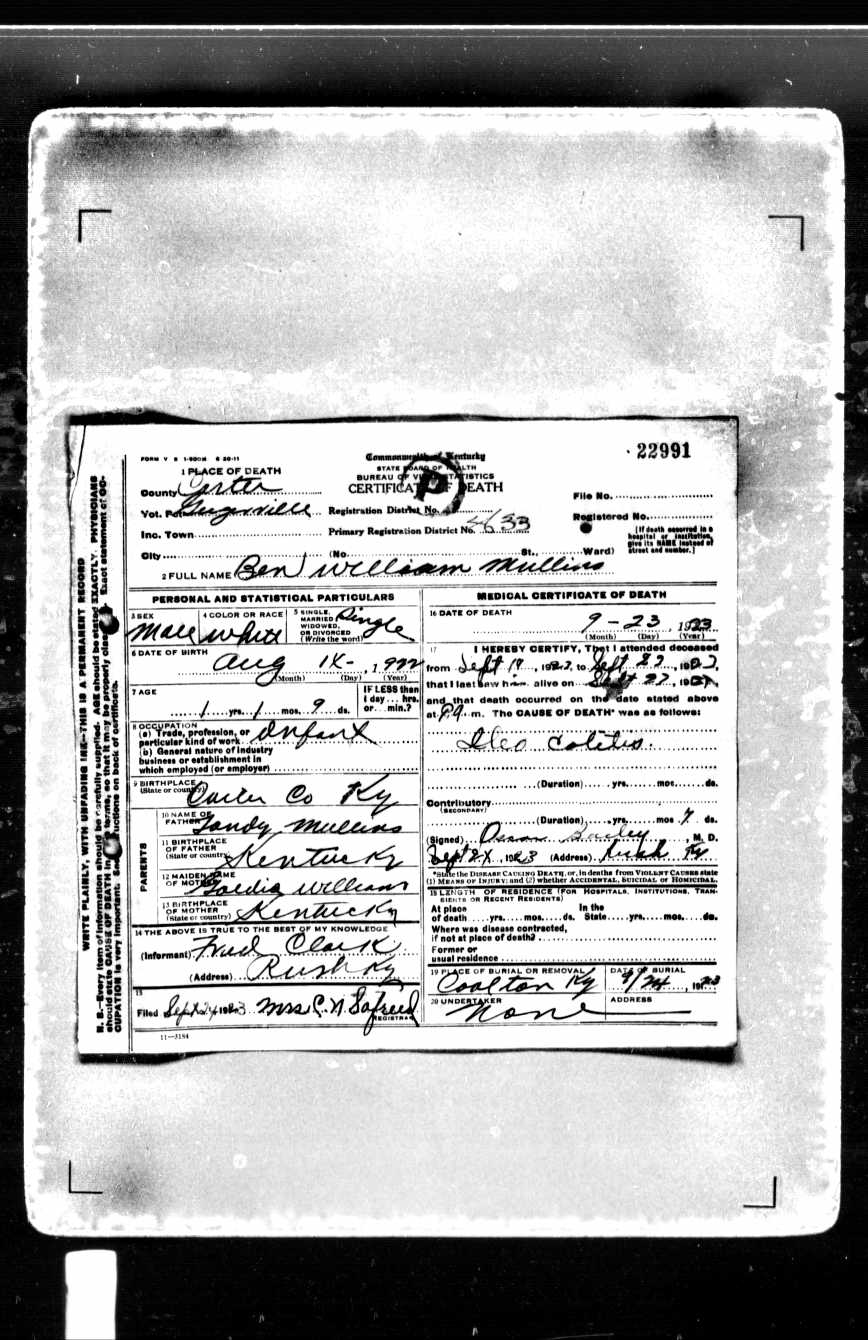 FORM V S 1-500M 6 20-11
Commonwealth of Kentucky
22991
1 PLACE OF DEATH
STATE BOARD OF HEALTH
BUREAU OF VITAL STATISTICS
CERTIFICATE OF DEATH
County Carter
File No.
Vot. Pct Registration District No.
Registered No.
Inc. Town Primary Registration District No. 4633
[If death occurred in a hospital or institution, give its NAME instead of street and number.]
City (No. St., Ward)
2 FULL NAME Ben William Mullins
PERSONAL AND STATISTICAL PARTICULARS
3 SEX Male
4 COLOR OR RACE White
5 SINGLE, MARRIED WIDOWED, OR DIVORCED (Write the word) Single
6 DATE OF BIRTH
Aug 14-, 1922
(Month) (Day) (Year)
7 AGE
1 yrs. 1 mos. 9 ds.
IF LESS than 1 day... hrs. or... min.?
8 OCCUPATION
(a) Trade, profession, or particular kind of work Infant
(b) General nature of industry business or establishment in which employed (or employer)
9 BIRTHPLACE
(State or country) Carter Co Ky
PARENTS
10 NAME OF FATHER Tandy Mullins
11 BIRTHPLACE OF FATHER
(State or country) Kentucky
12 MAIDEN NAME OF MOTHER Goldia Williams
13 BIRTHPLACE OF MOTHER
(State or country) Kentucky
14 THE ABOVE IS TRUE TO THE BEST OF MY KNOWLEDGE
(Informant) Fred Clark
(Address) Rush Ky
15
Filed Sept 24 1923 Mrs C. N.
REGISTRAR
11-3184
MEDICAL CERTIFICATE OF DEATH
16 DATE OF DEATH
9-23, 1923
(Month) (Day) (Year)
17 I HEREBY CERTIFY, That I attended deceased
from Sept 19, 1923, to Sept 23, 1923,
that I last saw him alive on Sept 22, 192
and that death occurred on the date stated above
at m. The CAUSE OF DEATH* was as follows:
Ileo Colitis.
(Duration) yrs. mos. ds.
Contributory
(SECONDARY)
(Duration) yrs. mos 7 ds.
(Signed) Oscar Bailey, M. D.
Sept 24, 1923 (Address) Rush Ky
*State the DISEASE CAUSING DEATH, or, in deaths from VIOLENT CAUSES state
(1) MEANS OF INJURY; and (2) whether ACCIDENTAL, SUICIDAL or HOMICIDAL.
18 LENGTH OF RESIDENCE (FOR HOSPITALS, INSTITUTIONS, TRANSIENTS OR RECENT RESIDENTS)
At place of death yrs. mos. ds. In the State yrs. mos. ds.
Where was disease contracted, if not at place of death?
Former or usual residence
19 PLACE OF BURIAL OR REMOVAL Coalton Ky
DATE OF BURIAL 9/24, 1923
20 UNDERTAKER None
ADDRESS
WRITE PLAINLY, WITH UNFADING INK—THIS IS A PERMANENT RECORD
N. B.—Every item of information should be carefully supplied. AGE should be stated EXACTLY. PHYSICIANS
should state CAUSE OF DEATH in terms, so that it may be properly Exact statement of OC-
CUPATION is very important. See instructions on back of certificate.